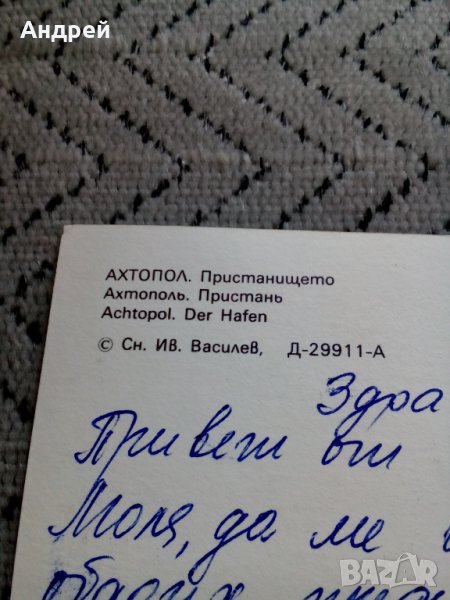 Андрей
АХТОПОЛ. Пристанището
Ахтополь. Пристань
Achtopol. Der Hafen
© Сн. Ив. Василев, Д-29911-А
Здра
Привет от
Моля, да ме
BAZAR